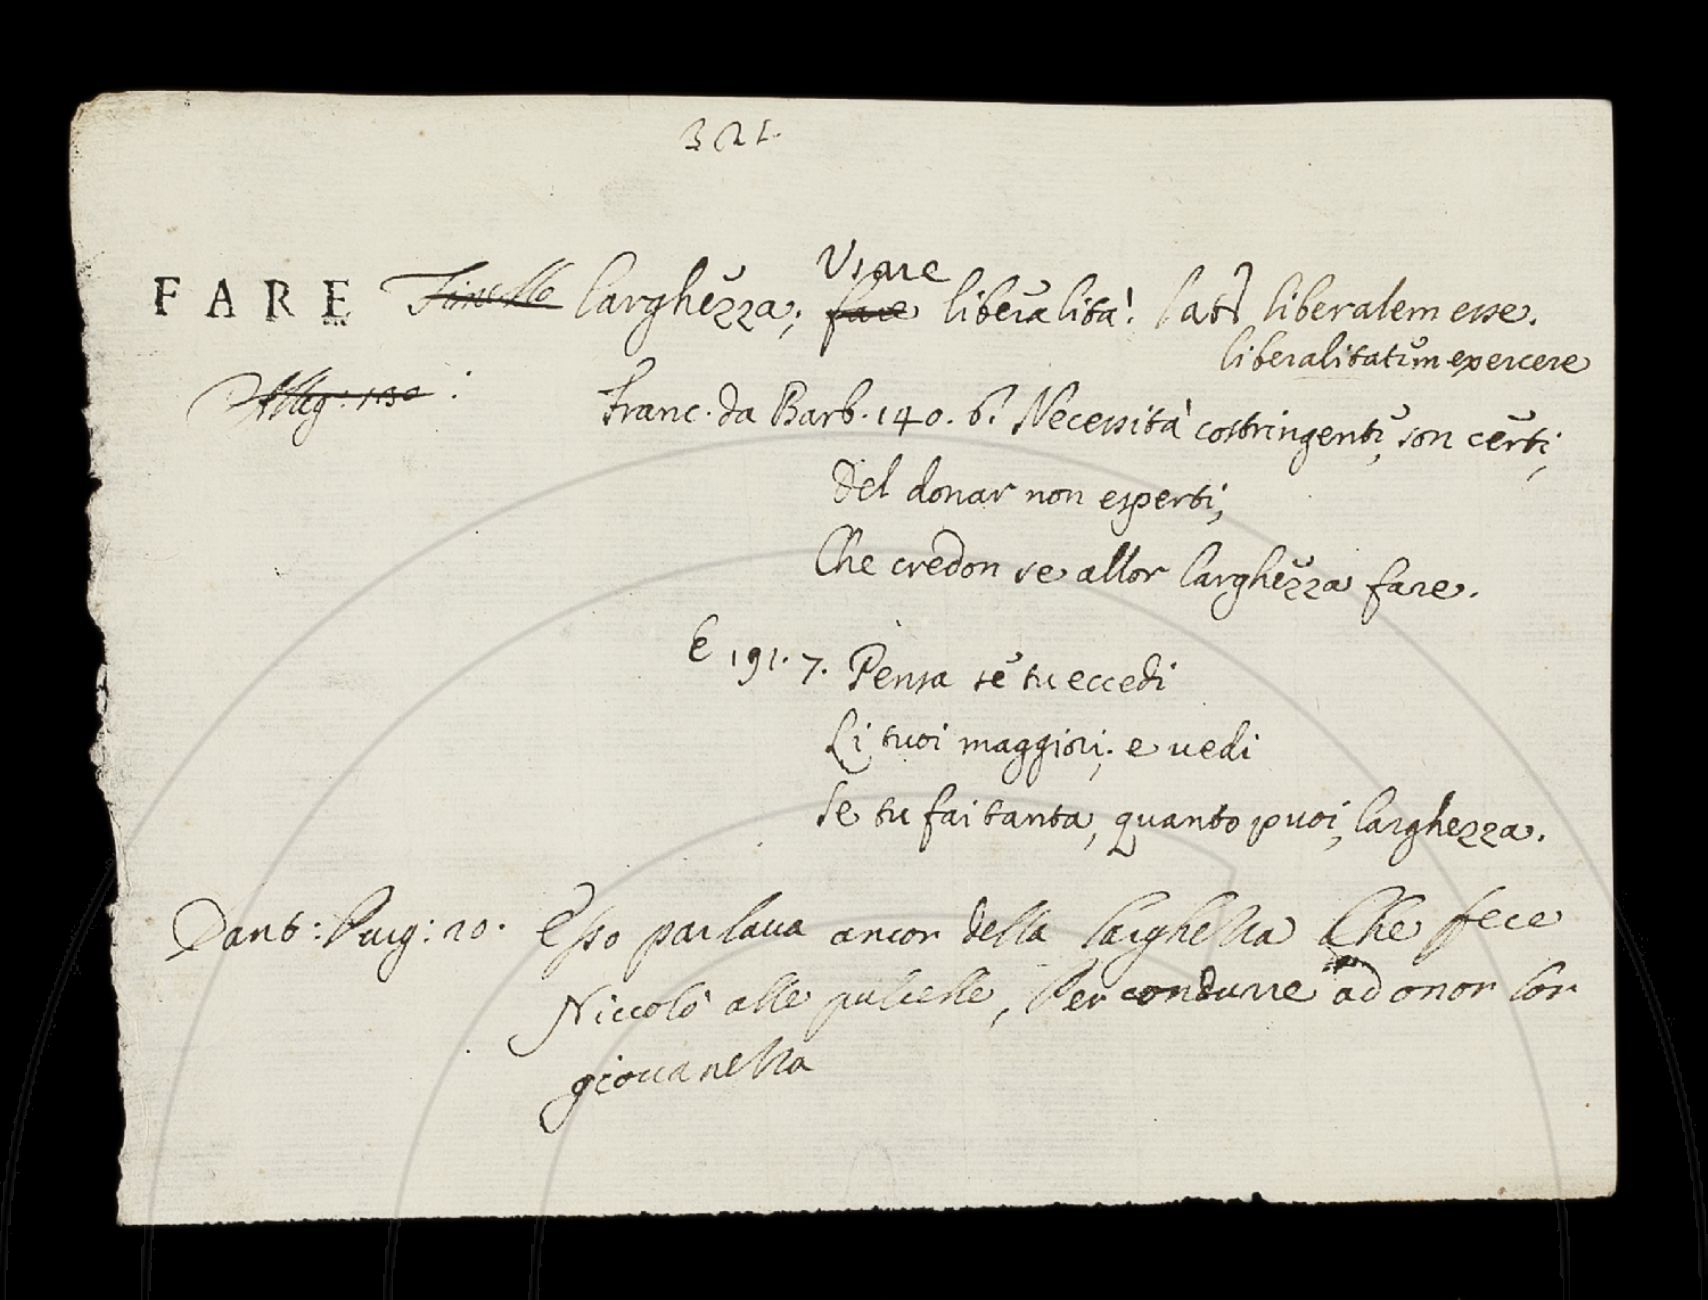 321.
FARE Finello larghezza; Usare fare liberalità. lat. liberalem esse.
liberalitatem exercere
Alleg. 130
Franc. da Barb. 140. 6. Necessità costringenti, son certi,
Del donar non esperti,
Che credon se allor larghezza fare.
E 191. 7. Pensa se tu eccedi
Li tuoi maggiori; e uedi
Se tu fai tanta, quanto puoi, larghezza.
Dant: Purg: 20. Esso parlaua ancor della larghezza Che fece
Niccolò alle pulcelle, Per condurre ad onor lor
giouanezza